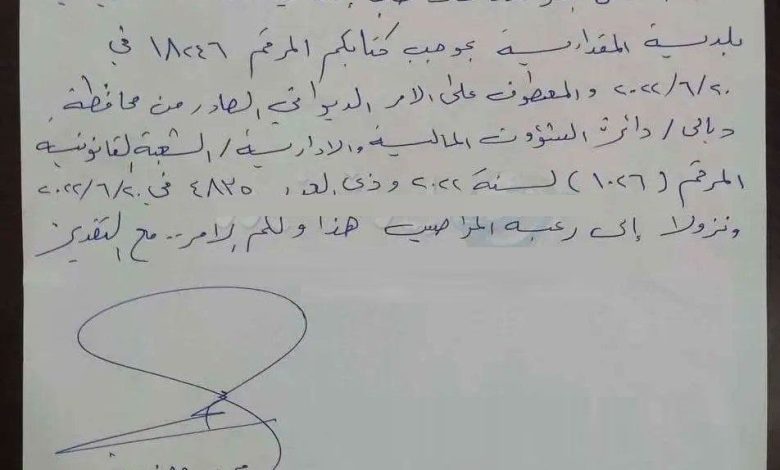 بلدية المقدادية بموجب كتابكم المرقم ١٨٢٤٦ في
٢٠٢٢/٦/٢٠ والمعطوف على الامر الديواني الصادر من محافظة
ديالى / دائرة الشؤون المالية والادارية / الشعبة القانونية
المرقم (١٠٢٦) لسنة ٢٠٢٢ وذي العدد ٤٨٣٥ في ٢٠٢٢/٦/٢٠
ونزولا إلى رغبة المراجعين هذا ولكم الامر .. مع التقدير